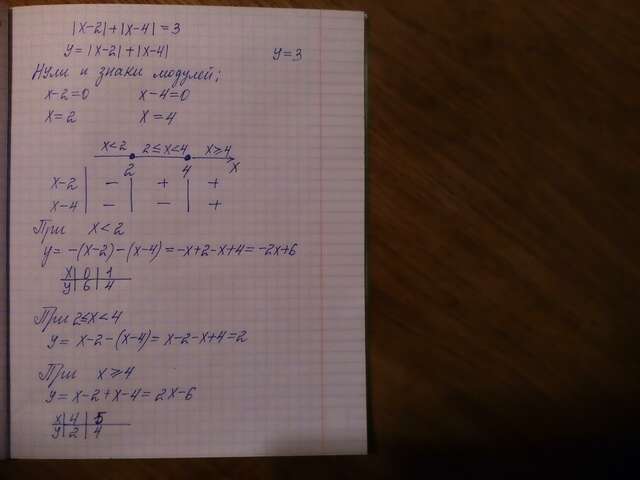 |x-2|+|x-4|=3
y=|x-2|+|x-4| y=3
Нули и знаки модулей;
x-2=0 x-4=0
x=2 x=4
x<2 2≤x<4 x≥4
2 4 x
x-2 - + +
x-4 - - +
При x<2
y=-(x-2)-(x-4)=-x+2-x+4=-2x+6
x 0 1
y 6 4
При 2≤x<4
y=x-2-(x-4)=x-2-x+4=2
При x≥4
y=x-2+x-4=2x-6
x 4 5
y 2 4